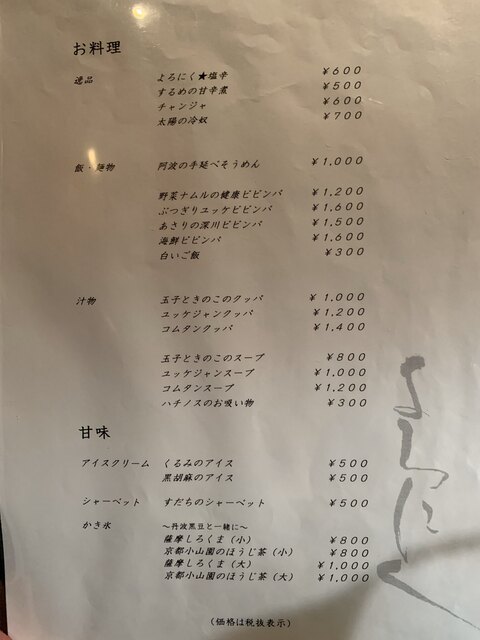 お料理
逸品 よろにく★塩辛 ¥600
するめの甘辛煮 ¥500
チャンジャ ¥600
太陽の冷奴 ¥700
飯・麺物 阿波の手延べそうめん ¥1,000
野菜ナムルの健康ビビンバ ¥1,200
ぶつぎりユッケビビンバ ¥1,600
あさりの深川ビビンバ ¥1,500
海鮮ビビンバ ¥1,600
白いご飯 ¥300
汁物 玉子ときのこのクッパ ¥1,000
ユッケジャンクッパ ¥1,200
コムタンクッパ ¥1,400
玉子ときのこのスープ ¥800
ユッケジャンスープ ¥1,000
コムタンスープ ¥1,200
ハチノスのお吸い物 ¥300
甘味
アイスクリーム くるみのアイス ¥500
黒胡麻のアイス ¥500
シャーベット すだちのシャーベット ¥500
かき氷 〜丹波黒豆と一緒に〜
薩摩しろくま（小） ¥800
京都小山園のほうじ茶（小） ¥800
薩摩しろくま（大） ¥1,000
京都小山園のほうじ茶（大） ¥1,000
よろにく
（価格は税抜表示）